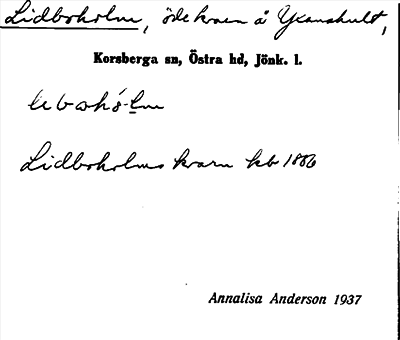 Lidboholm, ödekvarn å Ykanshult,
Korsberga sn, Östra hd, Jönk. l.
Lidboholms kvarn kb 1886
Annalisa Anderson 1937